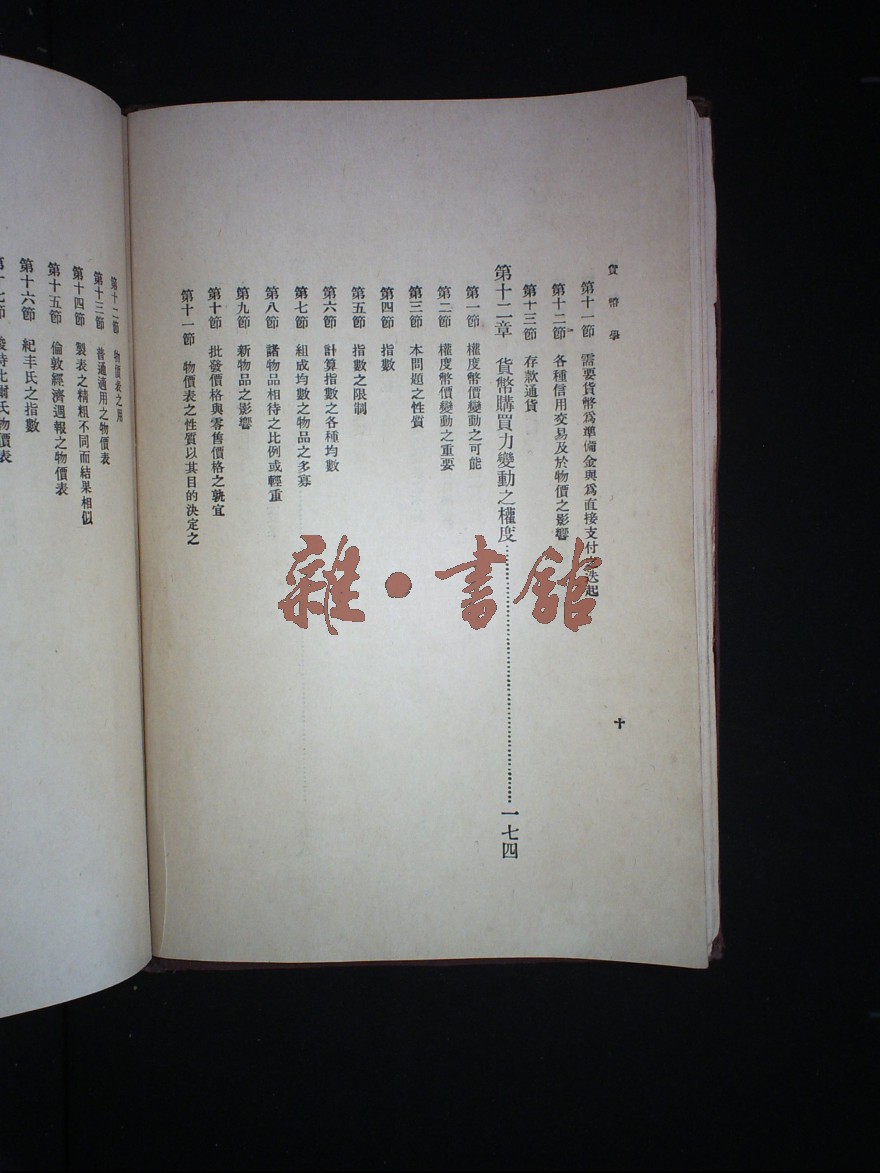 貨幣學
十
第十一節 需要貨幣爲準備金與爲直接支付之迭起
第十二節 各種信用交易及於物價之影響
第十三節 存款通貨
第十二章 貨幣購買力變動之權度……一七四
第一節 權度幣價變動之可能
第二節 權度幣價變動之重要
第三節 本問題之性質
第四節 指數
第五節 指數之限制
第六節 計算指數之各種均數
第七節 組成均數之物品之多寡
第八節 諸物品相待之比例或輕重
第九節 新物品之影響
第十節 批發價格與零售價格之孰宜
第十一節 物價表之性質以其目的決定之
第十二節 物價表之用
第十三節 普通適用之物價表
第十四節 製表之精粗不同而結果相似
第十五節 倫敦經濟週報之物價表
第十六節 紀丰氏之指數
第十七節 爾氏物價表
雜·書館